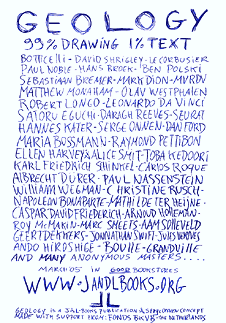 GEOLOGY
99% DRAWING 1% TEXT
BOTTICELLI - DAVID SHRIGLEY - LE CORBUSIER
PAUL NOBLE - HANS BROEK - BEN POLSKI
SEBASTIAAN BREMER - MARK DION - MVRDV
MATTHEW MONAHAN - OLAV WESTPHALEN
ROBERT LONGO - LEONARDO DA VINCI
SATORU EGUCHI - DARAGH REEVES - SEURAT
HANNES KATER - SERGE ONNEN - DAN FORD
MARIA BOSSMANN - RAYMOND PETTIBON
ELLEN HARVEY & ALICE SMIT - TOBA KEDOORI
KARL FRIEDRICH SCHINKEL - CARLOS ROQUE
ALBRECHT DURER - PAUL NASSENSTEIN
WILLIAM WEGMAN - CHRISTINE RUSCH
NAPOLEON BONAPARTE - MATHILDE TER HEIJNE
CASPAR DAVID FRIEDRICH - ARNOUD HOLLEMAN
ROY MCMAKIN - MARC SMEETS - AAM SOLLEVELD
GEERT DEKKERS - JONATHAN SWIFT - JULES
ANDO HIROSHIGE - BOULLE - GRANDVILLE
AND MANY ANONYMOUS MASTERS....
MARCH '05 IN GOOD BOOKSTORES
WWW.JANDLBOOKS.ORG
GEOLOGY IS A J&L-BOOKS PUBLICATION & SERGE ONNEN CONCEPT
MADE WITH SUPPORT FROM: FONDS BKVB - NETHERLANDS